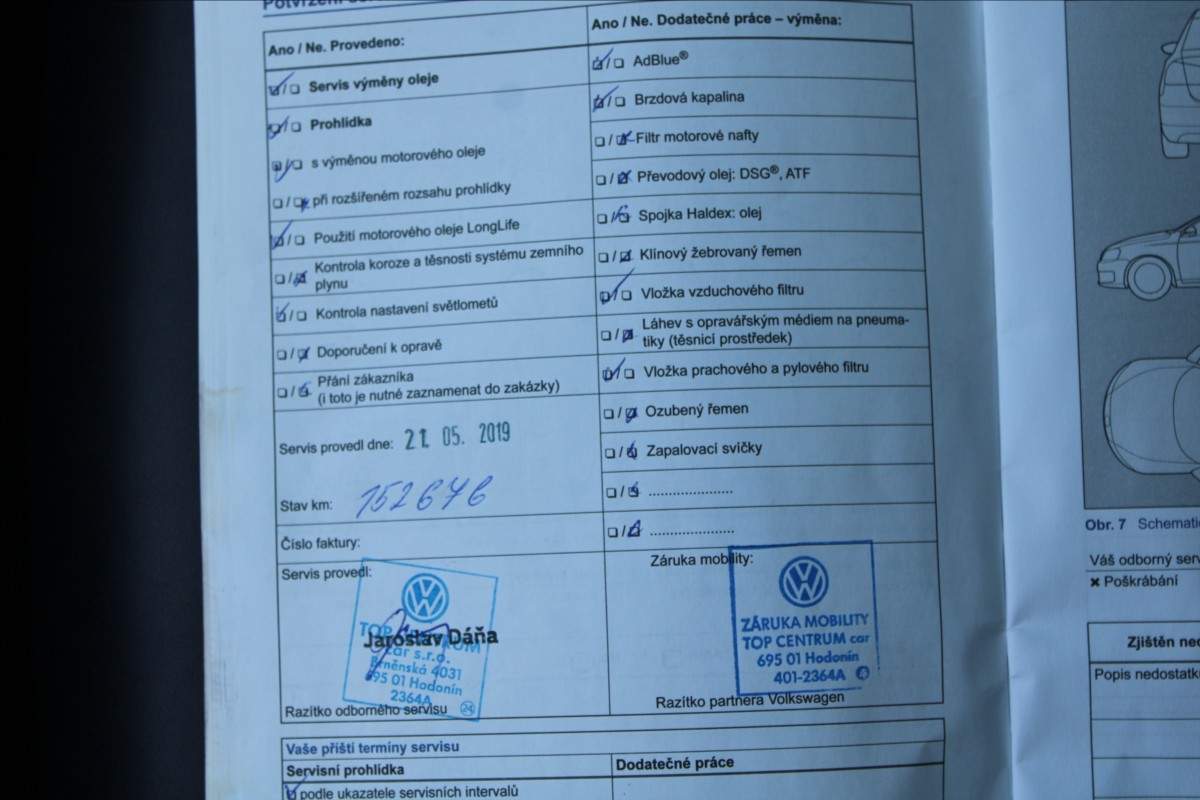 Ano / Ne. Provedeno:
❑/❑ Servis výměny oleje
❑/❑ Prohlídka
❑/❑ s výměnou motorového oleje
❑/❑ při rozšířeném rozsahu prohlídky
❑/❑ Použití motorového oleje LongLife
❑/❑ Kontrola koroze a těsnosti systému zemního
plynu
❑/❑ Kontrola nastavení světlometů
❑/❑ Doporučení k opravě
❑/❑ Přání zákazníka
(i toto je nutné zaznamenat do zakázky)
Servis provedl dne: 21 05. 2019
Stav km: 152676
Číslo faktury:
Servis provedl:
TOP CENTRUM
Jaroslav Dáňa
car s.r.o.
Brněnská 4031
695 01 Hodonín
2364A
24
Razítko odborného servisu
Ano / Ne. Dodatečné práce – výměna:
❑/❑ AdBlue®
❑/❑ Brzdová kapalina
❑/❑ Filtr motorové nafty
❑/❑ Převodový olej: DSG®, ATF
❑/❑ Spojka Haldex: olej
❑/❑ Klínový žebrovaný řemen
❑/❑ Vložka vzduchového filtru
❑/❑ Láhev s opravářským médiem na pneuma-
tiky (těsnicí prostředek)
❑/❑ Vložka prachového a pylového filtru
❑/❑ Ozubený řemen
❑/❑ Zapalovací svíčky
❑/❑ .....................
❑/❑ .....................
Záruka mobility:
ZÁRUKA MOBILITY
TOP CENTRUM car
695 01 Hodonín
401-2364A 4
Razítko partnera Volkswagen
Vaše příští termíny servisu
Servisní prohlídka
Dodatečné práce
podle ukazatele servisních intervalů
Obr. 7 Schemati
Váš odborný serv
✖ Poškrábání
Zjištěn ned
Popis nedostatk